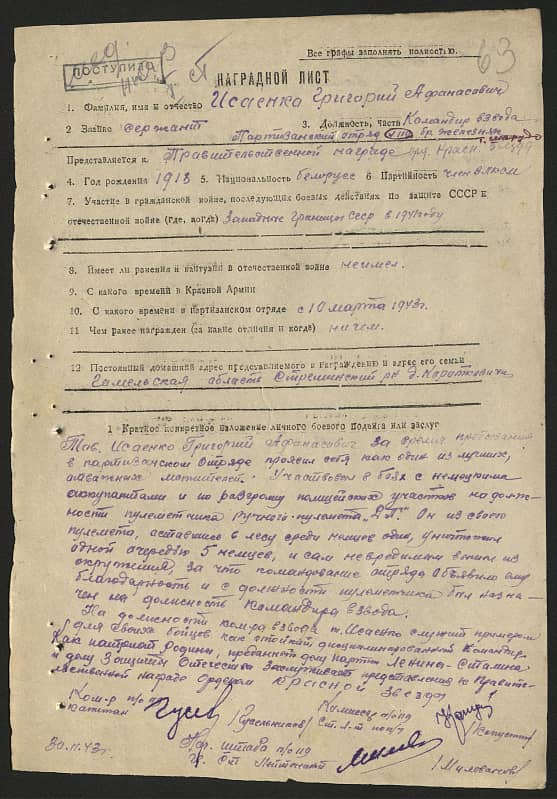 Все графы заполнять полностью.
63
ПОСТУПИЛО
НАГРАДНОЙ ЛИСТ
1. Фамилия, имя и отчество Исаенко Григорий Афанасович
2 Звание сержант 3. Должность, часть Командир взвода
Партизанский отряд бр. Железняк
Представляется к Правительственной награде орд. Красн. Звезда
4. Год рождения 1918 5. Национальность белорус 6 Партийность член ВЛКСМ
7. Участие в гражданской войне, последующих боевых действиях по защите СССР и
отечественной войне (где, когда) Западная Граница СССР в 1941 году
8. Имеет ли ранения и контузии в отечественной войне неимел.
9. С какого времени в Красной Армии
10. С какого времени в партизанском отряде с 10 марта 1943 г.
11 Чем ранее награжден (за какие отличия и когда) ничем.
12 Постоянный домашний адрес представляемого к награждению и адрес его семьи
Гомельская область Стрешинский рн д. Короткевичи
1 Краткое конкретное изложение личного боевого подвига или заслуг
Тов. Исаенко Григорий Афанасович за время пребывания
в партизанском отряде проявил себя как один из лучших,
отважних мстителей. Участвовал в боях с немецкими
оккупантами и по разгрому полицейских участков на долж-
ности пулеметчика ручного-пулемета „ДП". Он из своего
пулемета, оставшись в лесу среди немцов один, уничтожил
одной очередью 5 немцев, и сам невредимым вышел из
окружения, за что командование отряда объявило ему
благодарность и с должности пулеметчика был назна-
чен на должность командира взвода.
На должности ком-ра взвода т. Исаенко служит примером
для своих бойцов как стойкий дисциплинированный командир.
Как патриот Родины, преданный делу партии Ленина-Сталина
и делу Защиты Отечества заслуживает представления к Правите-
льственной награде орденом Красной Звезда
Ком-р п/о
капитан Гусев Комиссар п/о
Ст. л-т
30.11.43г. Нач. штаба п/о
Гв. Ст. Лейтенант /Милованов/